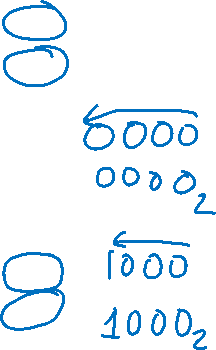 0000
0000₂
1000
1000₂